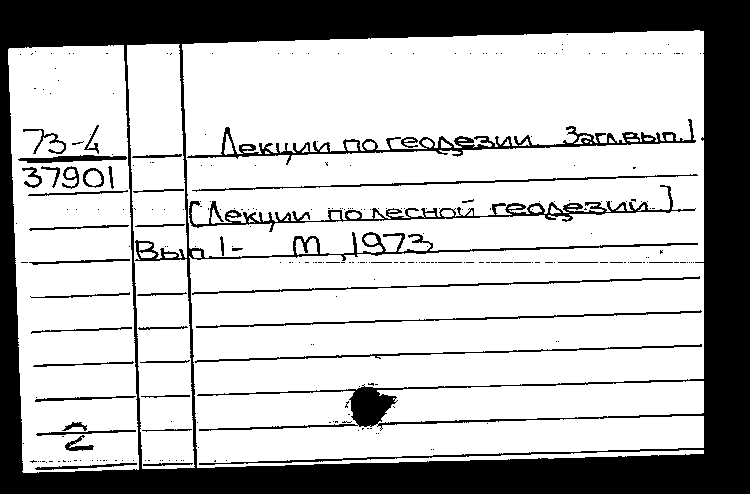 73-4 Лекции по геодезии. Загл.вып.1.
37901
[Лекции по лесной геодезии.]
Вып.1- М, 1973
2